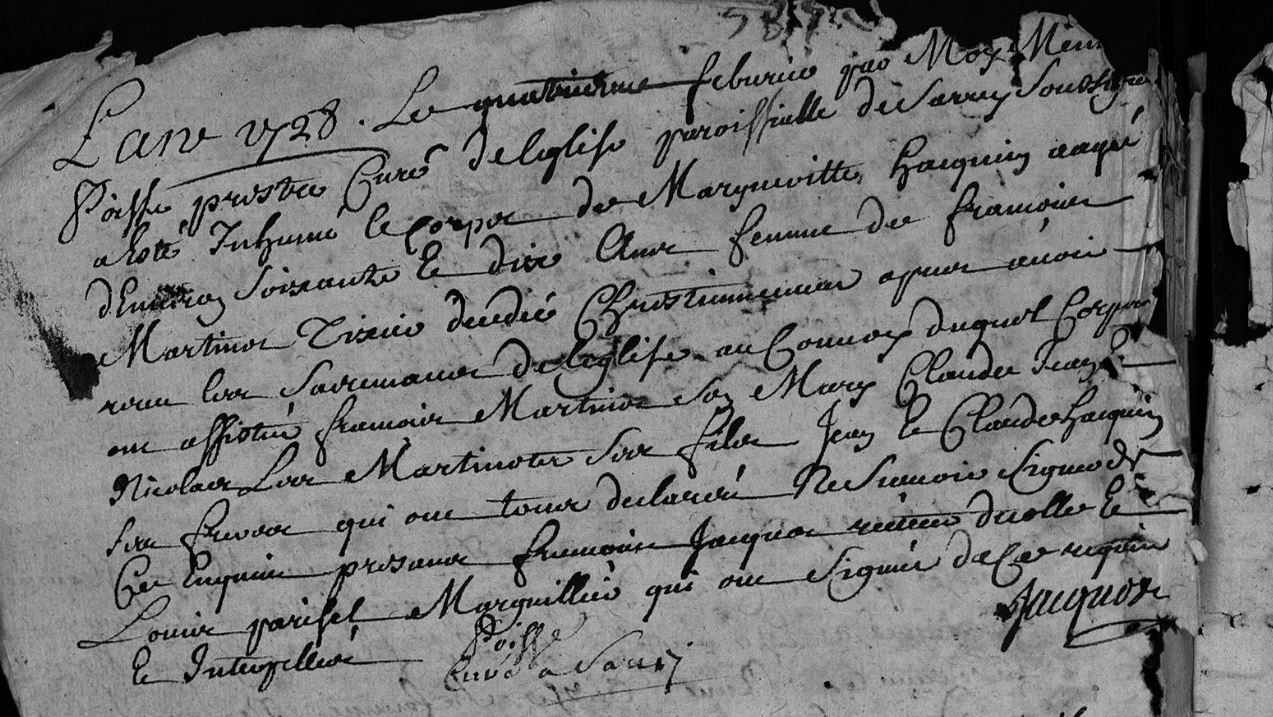 L'an 1728. Le quatrieme feburier par Moy
Poisse prestre Curé de leglise paroissialle de Sarrey Soussigné
a esté Inhumé le Corps de Margueritte Hacquin aagée
d'Environ Soixante et dix Ans femme de francois
Martinot Tixier decedée Chrestiennement apres avoir
receu les Sacremans de leglise au Convoy duquel Corps
ont assistés francois Martinot son Mary Claude Jean et
Nicolas Les Martinots ses fils Jean et Claude hacquin
ses freres qui ont tous declarés Ne scavoir signer de
Ce Enquis presens francois Jacquot d'icelle et
Louis parisel Marguillier qui ont Signés de Ce requis
et Interpellés
Poisse
Curé a Sarrey
Jacquot